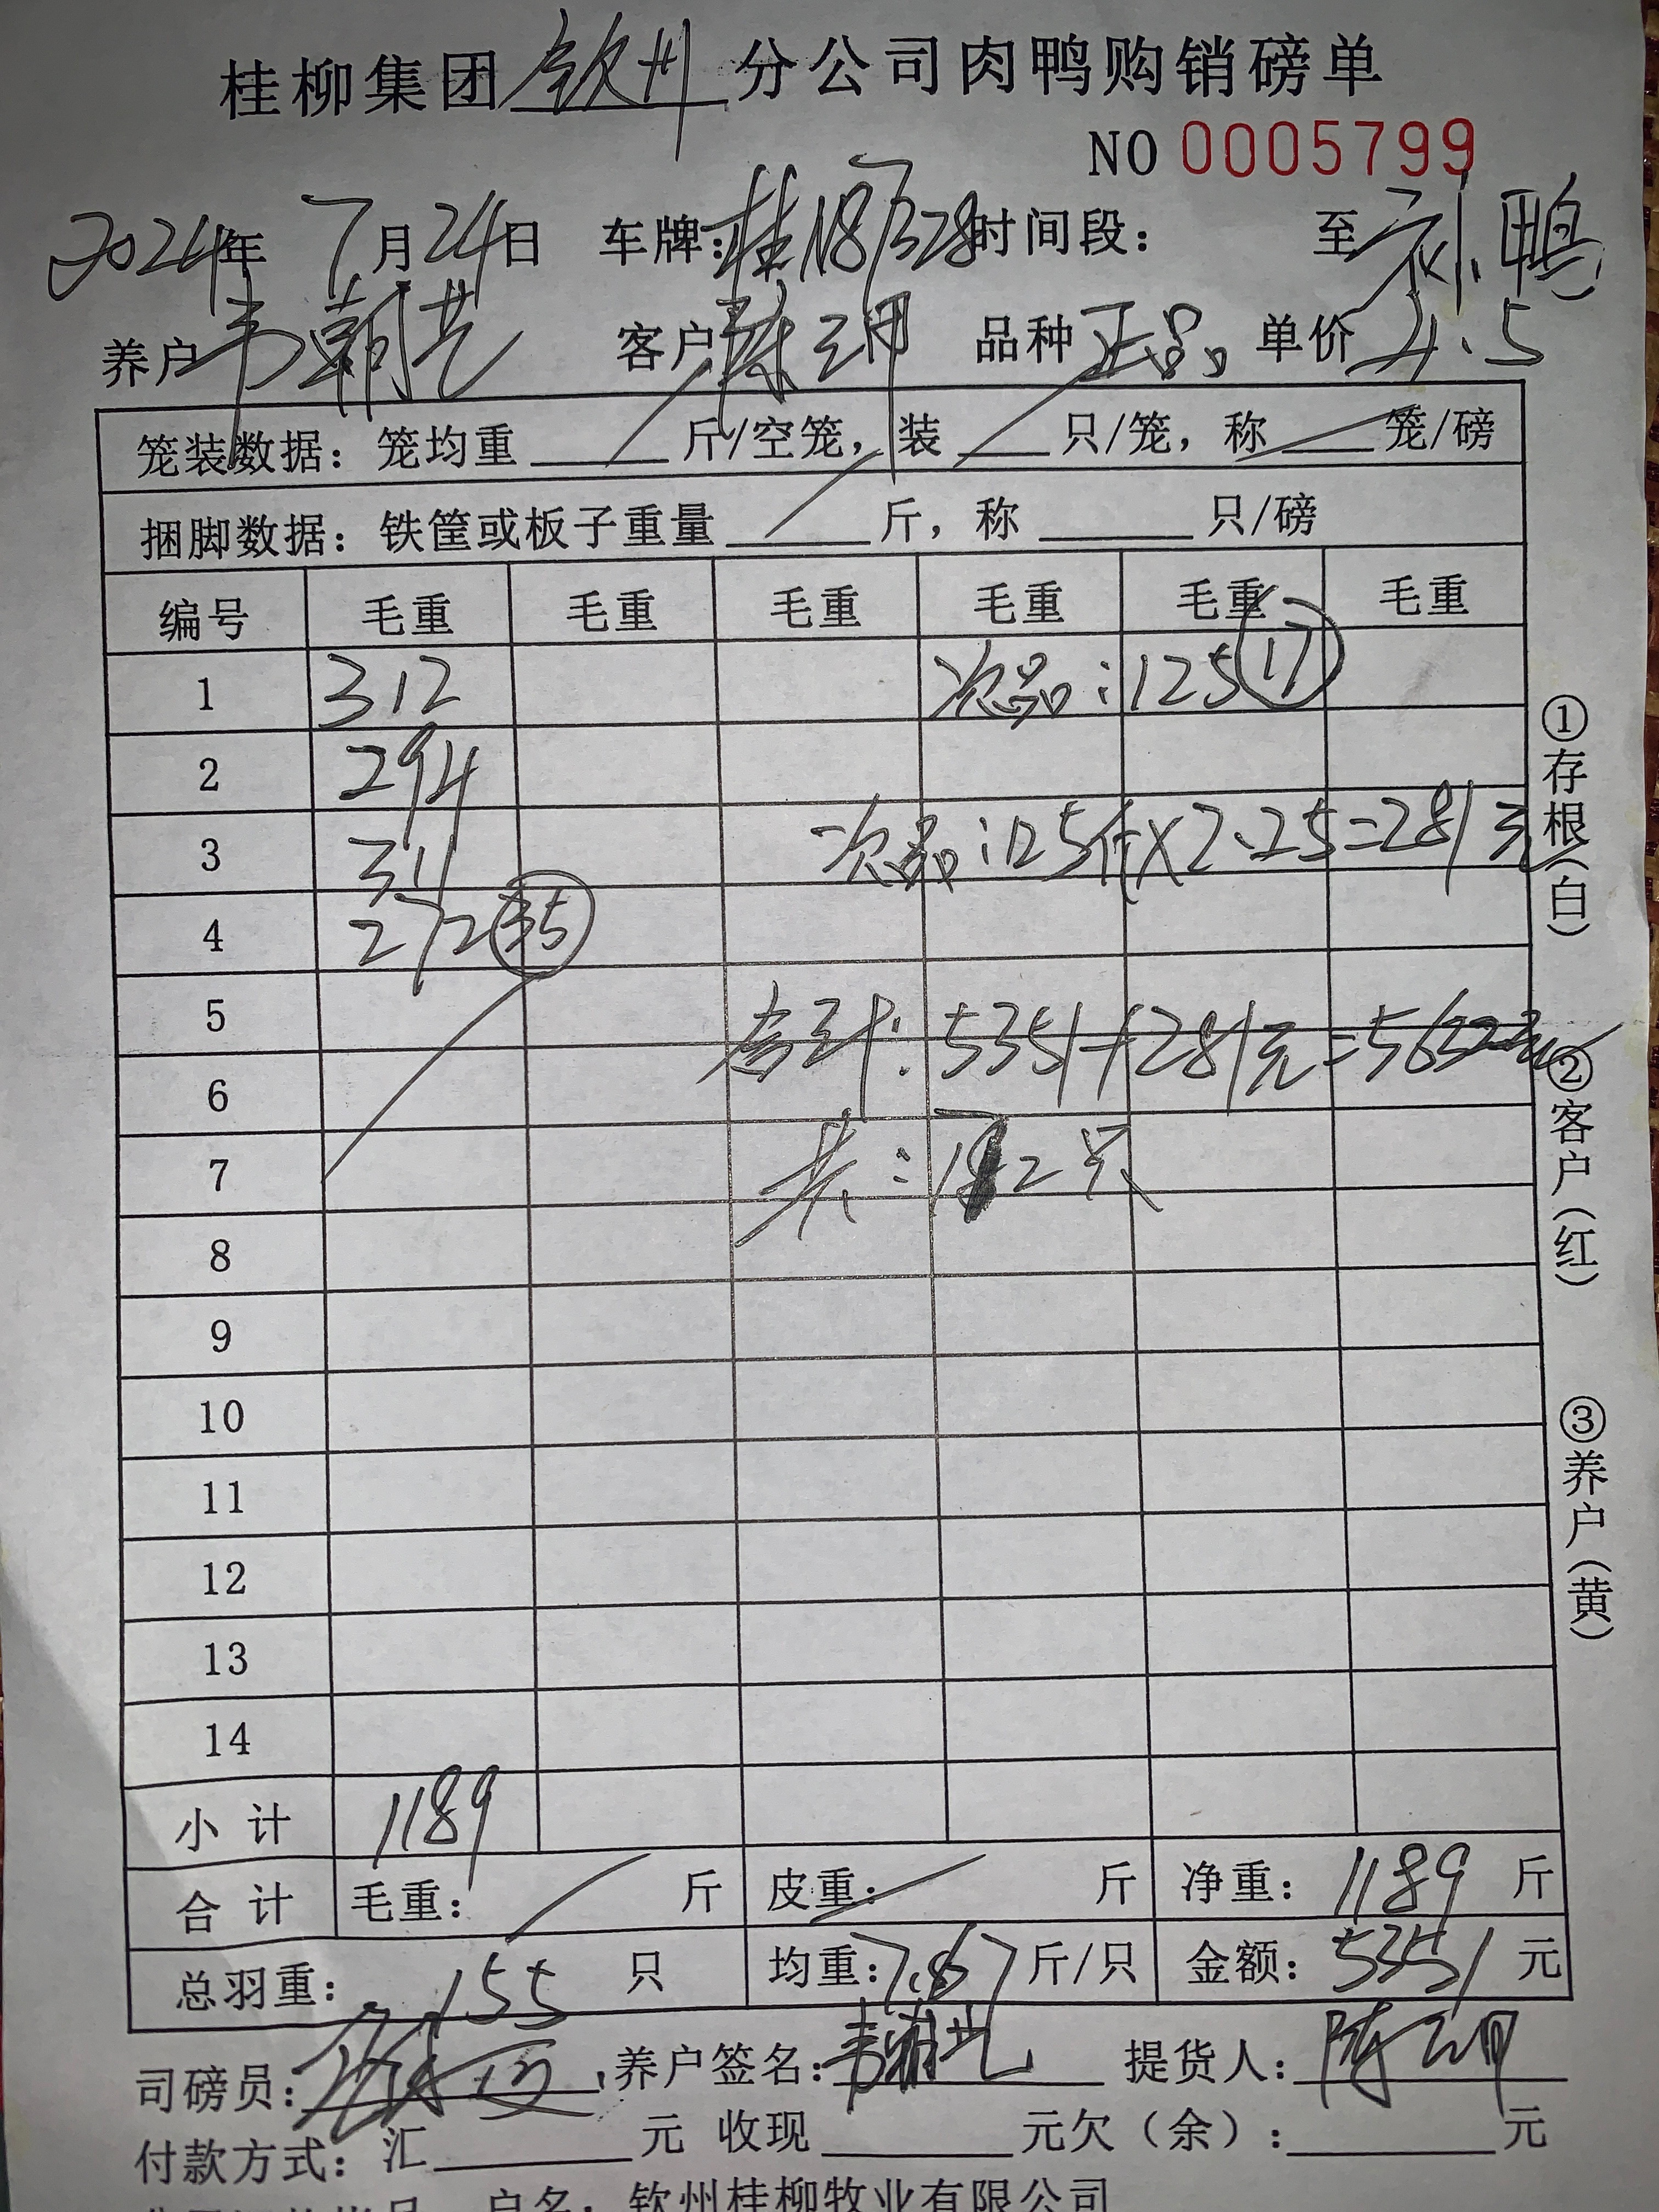 桂柳集团 钦州 分公司肉鸭购销磅单
NO 0005799
2024年 7月24日 车牌:桂N87328 时间段: 至 补鸭
养户 韦朝艺 客户 陈玥 品种 正品 单价 4.5
笼装数据: 笼均重 斤/空笼, 装 只/笼, 称 笼/磅
捆脚数据: 铁筐或板子重量 斤, 称 只/磅
编号 毛重 毛重 毛重 毛重 毛重 毛重
1 312 次品:125 17
2 294
3 311 次品:125斤X2.25=281元
4 272 35
5 合计:5351+281元=5632元
6
7 共:172只
8
9
10
11
12
13
14
小计 1189
合计 毛重: 斤 皮重: 斤 净重: 1189 斤
总羽重: 155 只 均重:7.67斤/只 金额: 5351 元
司磅员: 养户签名:韦朝艺 提货人: 陈玥
付款方式: 汇 元 收现 元欠(余): 元
户名: 钦州桂柳牧业有限公司
①存根(白)
②客户(红)
③养户(黄)